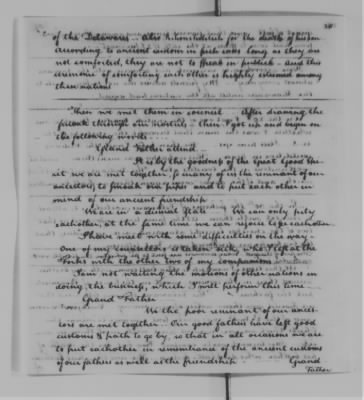 of the Delawares also
According to ancient custom in such cases long as they are
not comforted, they are not to speak in publick and this
ceremony of comforting each other is highly esteemed among
these nations
Then we met them in council After drawing the
smoak through our nostrils then I got up and began on
the following words
Grand Father attend
It is by the goodness of the great Good Spi
rit we are met together so many of us the remnant of our
ancestors, to smoak our pipes and to put each other in
mind of our ancient friendship
We are in a dismal state We can only pity
eachother, at the same time we can rejoice to see eachother
I have met with some difficulties on the way
One of my counsellors is taken sick, who I left at the
Forks with the other two of my companions
I am not waiting the motions of other nations in
doing the business, which I will perform this time
Grand Father
We the poor remnant of our ances
tors are met together Our good fathers have left good
customs & path to go by, so that in all occasions we are
to put eachother in remembrance of the ancient customs
of our fathers as well as the friendship Grand
Father